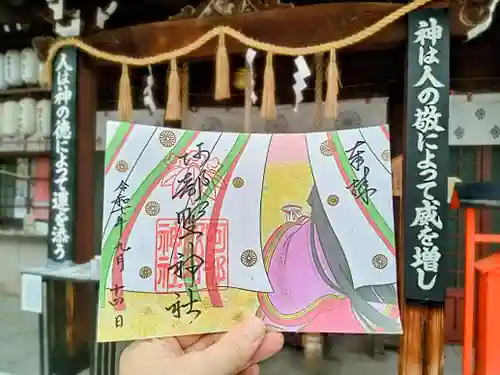 神は人の敬によって威を増し
奉拝
阿部野神社
阿部野神社
令和 年九月十四日
人は神の徳によって運を添う